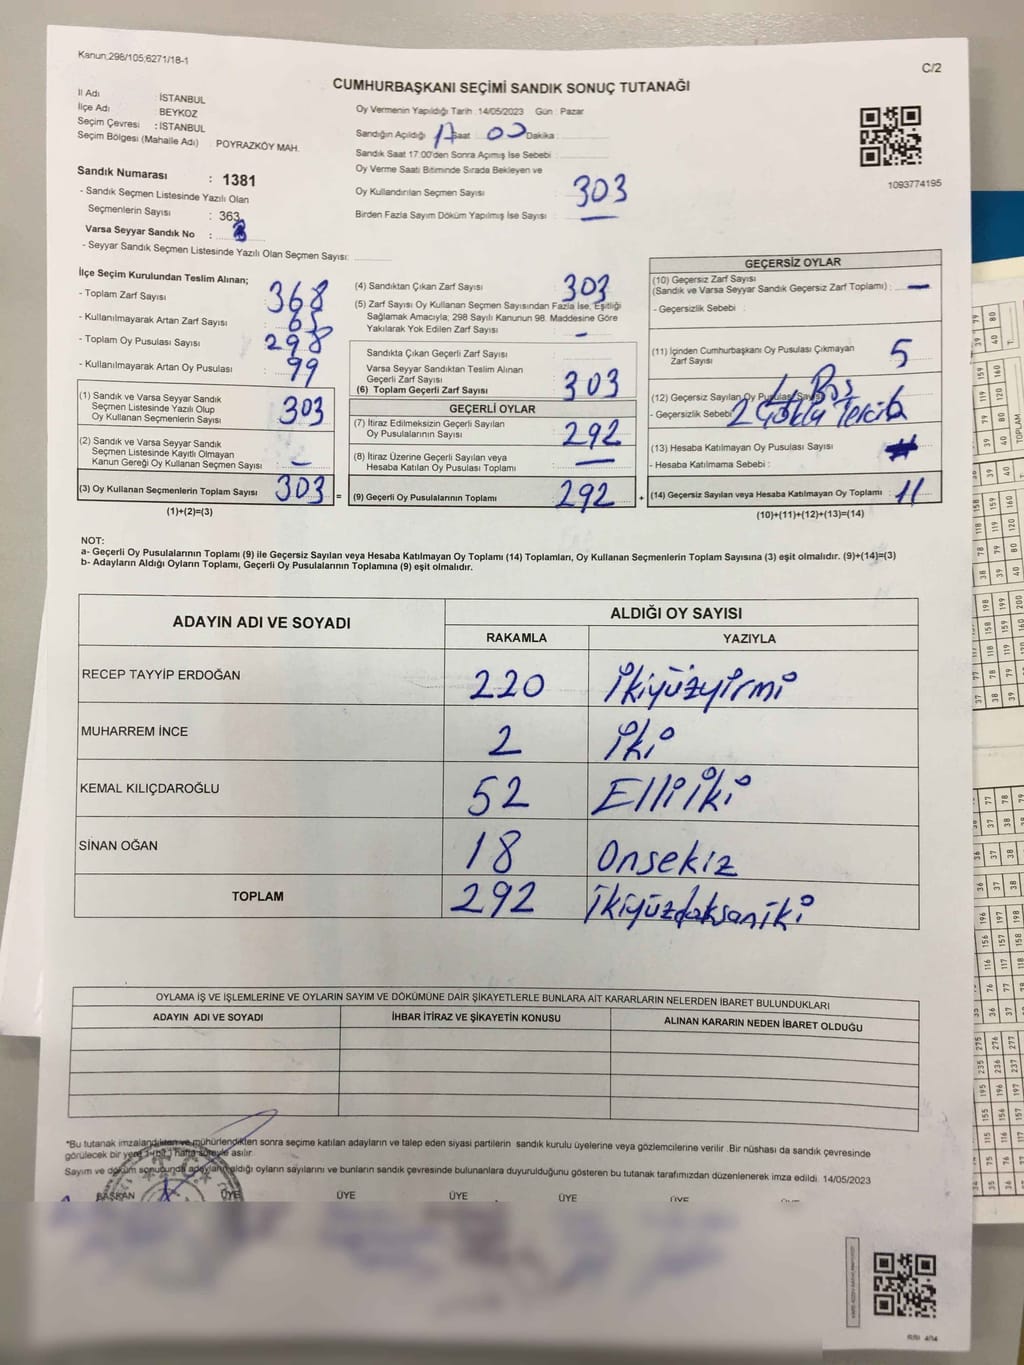 Kanun,298/105;6271/18-1
C/2
CUMHURBAŞKANI SEÇİMİ SANDIK SONUÇ TUTANAĞI
İl Adı : İSTANBUL
İlçe Adı BEYKOZ
Seçim Çevresi : İSTANBUL
Seçim Bölgesi (Mahalle Adı) : POYRAZKÖY MAH.
Sandık Numarası : 1381
- Sandık Seçmen Listesinde Yazılı Olan
Seçmenlerin Sayısı : 363
Varsa Seyyar Sandık No :
- Seyyar Sandık Seçmen Listesinde Yazılı Olan Seçmen Sayısı:
Oy Vermenin Yapıldığı Tarih : 14/05/2023 Gün : Pazar
Sandığın Açıldığı Saat 00 Dakika
Sandık Saat 17:00'den Sonra Açımış İse Sebebi :
Oy Verme Saati Bitiminde Sırada Bekleyen ve
Oy Kullandırılan Seçmen Sayısı 303
Birden Fazla Sayım Döküm Yapılmış İse Sayısı : —
1093774195
İlçe Seçim Kurulundan Teslim Alınan;
- Toplam Zarf Sayısı : 368
- Kullanılmayarak Artan Zarf Sayısı : 65
- Toplam Oy Pusulası Sayısı : 298
- Kullanılmayarak Artan Oy Pusulası : 99
(1) Sandık ve Varsa Seyyar Sandık
Seçmen Listesinde Yazılı Olup
Oy Kullanan Seçmenlerin Sayısı : 303
(2) Sandık ve Varsa Seyyar Sandık
Seçmen Listesinde Kayıtlı Olmayan
Kanun Gereği Oy Kullanan Seçmen Sayısı : –
(3) Oy Kullanan Seçmenlerin Toplam Sayısı : 303 =
(1)+(2)=(3)
(4) Sandıktan Çıkan Zarf Sayısı : 303
(5) Zarf Sayısı Oy Kullanan Seçmen Sayısından Fazla İse, Eşitliği
Sağlamak Amacıyla; 298 Sayılı Kanunun 98. Maddesine Göre
Yakılarak Yok Edilen Zarf Sayısı : –
Sandıkta Çıkan Geçerli Zarf Sayısı :
Varsa Seyyar Sandıktan Teslim Alınan
Geçerli Zarf Sayısı
(6) Toplam Geçerli Zarf Sayısı : 303
GEÇERLİ OYLAR
(7) İtiraz Edilmeksizin Geçerli Sayılan
Oy Pusulalarının Sayısı : 292
(8) İtiraz Üzerine Geçerli Sayılan veya
Hesaba Katılan Oy Pusulası Toplamı : —
(9) Geçerli Oy Pusulalarının Toplamı : 292 +
GEÇERSİZ OYLAR
(10) Geçersiz Zarf Sayısı
(Sandık ve Varsa Seyyar Sandık Geçersiz Zarf Toplamı) : –
- Geçersizlik Sebebi :
(11) İçinden Cumhurbaşkanı Oy Pusulası Çıkmayan
Zarf Sayısı 5
(12) Geçersiz Sayılan Oy Pusulası Sayısı 4 Boş
- Geçersizlik Sebebi 2 Çoklu Tercih
(13) Hesaba Katılmayan Oy Pusulası Sayısı
- Hesaba Katılmama Sebebi :
(14) Geçersiz Sayılan veya Hesaba Katılmayan Oy Toplamı : 11
(10)+(11)+(12)+(13)=(14)
NOT:
a- Geçerli Oy Pusulalarının Toplamı (9) ile Geçersiz Sayılan veya Hesaba Katılmayan Oy Toplamı (14) Toplamları, Oy Kullanan Seçmenlerin Toplam Sayısına (3) eşit olmalıdır. (9)+(14)=(3)
b- Adayların Aldığı Oyların Toplamı, Geçerli Oy Pusulalarının Toplamına (9) eşit olmalıdır.
ADAYIN ADI VE SOYADI ALDIĞI OY SAYISI
RAKAMLA YAZIYLA
RECEP TAYYİP ERDOĞAN 220 İkiyüzyirmi
MUHARREM İNCE 2 İki
KEMAL KILIÇDAROĞLU 52 Elliiki
SİNAN OĞAN 18 Onsekiz
TOPLAM 292 İkiyüzdoksaniki
OYLAMA İŞ VE İŞLEMLERİNE VE OYLARIN SAYIM VE DÖKÜMÜNE DAİR ŞİKAYETLERLE BUNLARA AİT KARARLARIN NELERDEN İBARET BULUNDUKLARI
ADAYIN ADI VE SOYADI İHBAR İTİRAZ VE ŞİKAYETİN KONUSU ALINAN KARARIN NEDEN İBARET OLDUĞU
*Bu tutanak imzalandıkten ve mühürlendikten sonra seçime katılan adayların ve talep eden siyasi partilerin sandık kurulu üyelerine veya gözlemcilerine verilir. Bir nüshası da sandık çevresinde
görülecek bir yere 1 (bir) hafta süreyle asılır.
Sayım ve döküm sonucunda adayların aldığı oyların sayılarını ve bunların sandık çevresinde bulunanlara duyurulduğunu gösteren bu tutanak tarafımızdan düzenlenerek imza edildi. 14/05/2023
BAŞKAN ÜYE ÜYE ÜYE ÜYE ÜYE